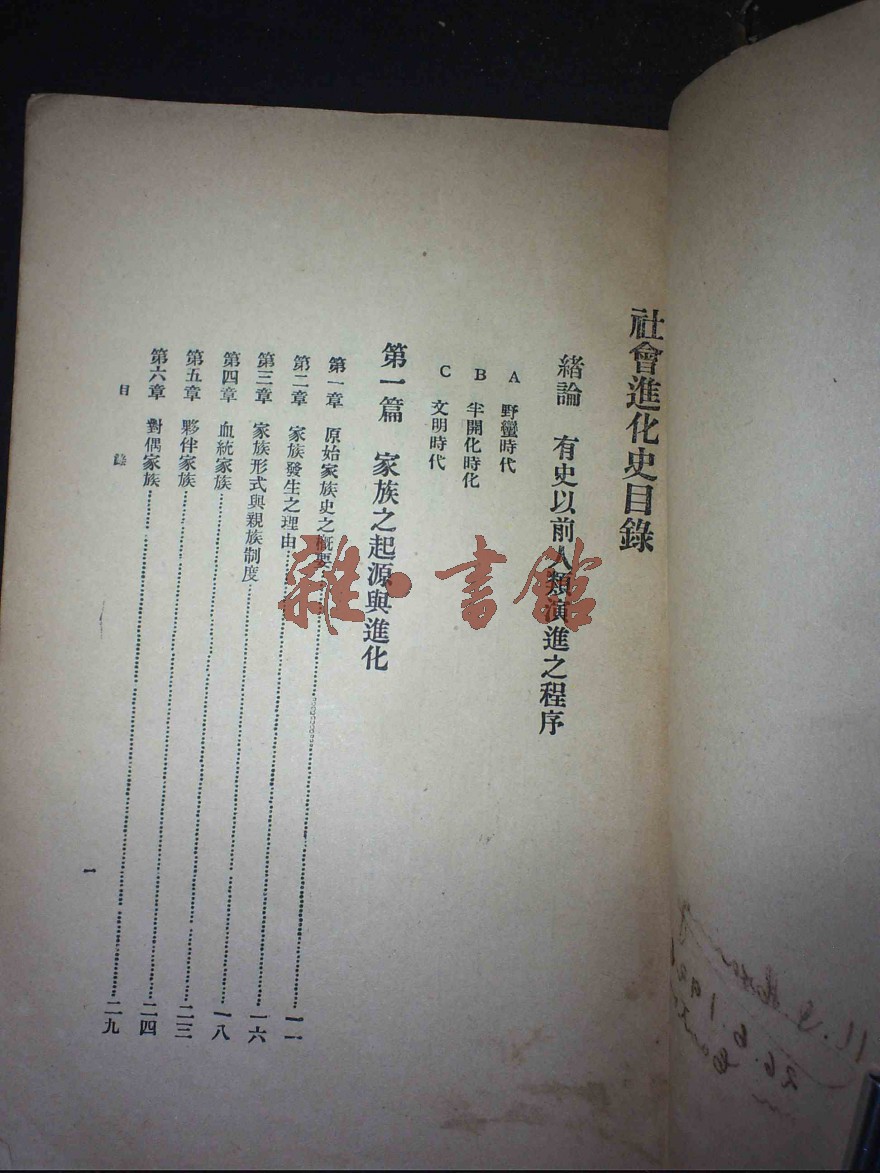 社會進化史目錄
緒論 有史以前人類演進之程序
A 野蠻時代
B 半開化時化
C 文明時代
第一篇 家族之起源與進化
第一章 原始家族史之概要……一一
第二章 家族發生之理由……一六
第三章 家族形式與親族制度……一八
第四章 血統家族……二三
第五章 夥伴家族……二四
第六章 對偶家族……二九
目錄
一
雜·書館